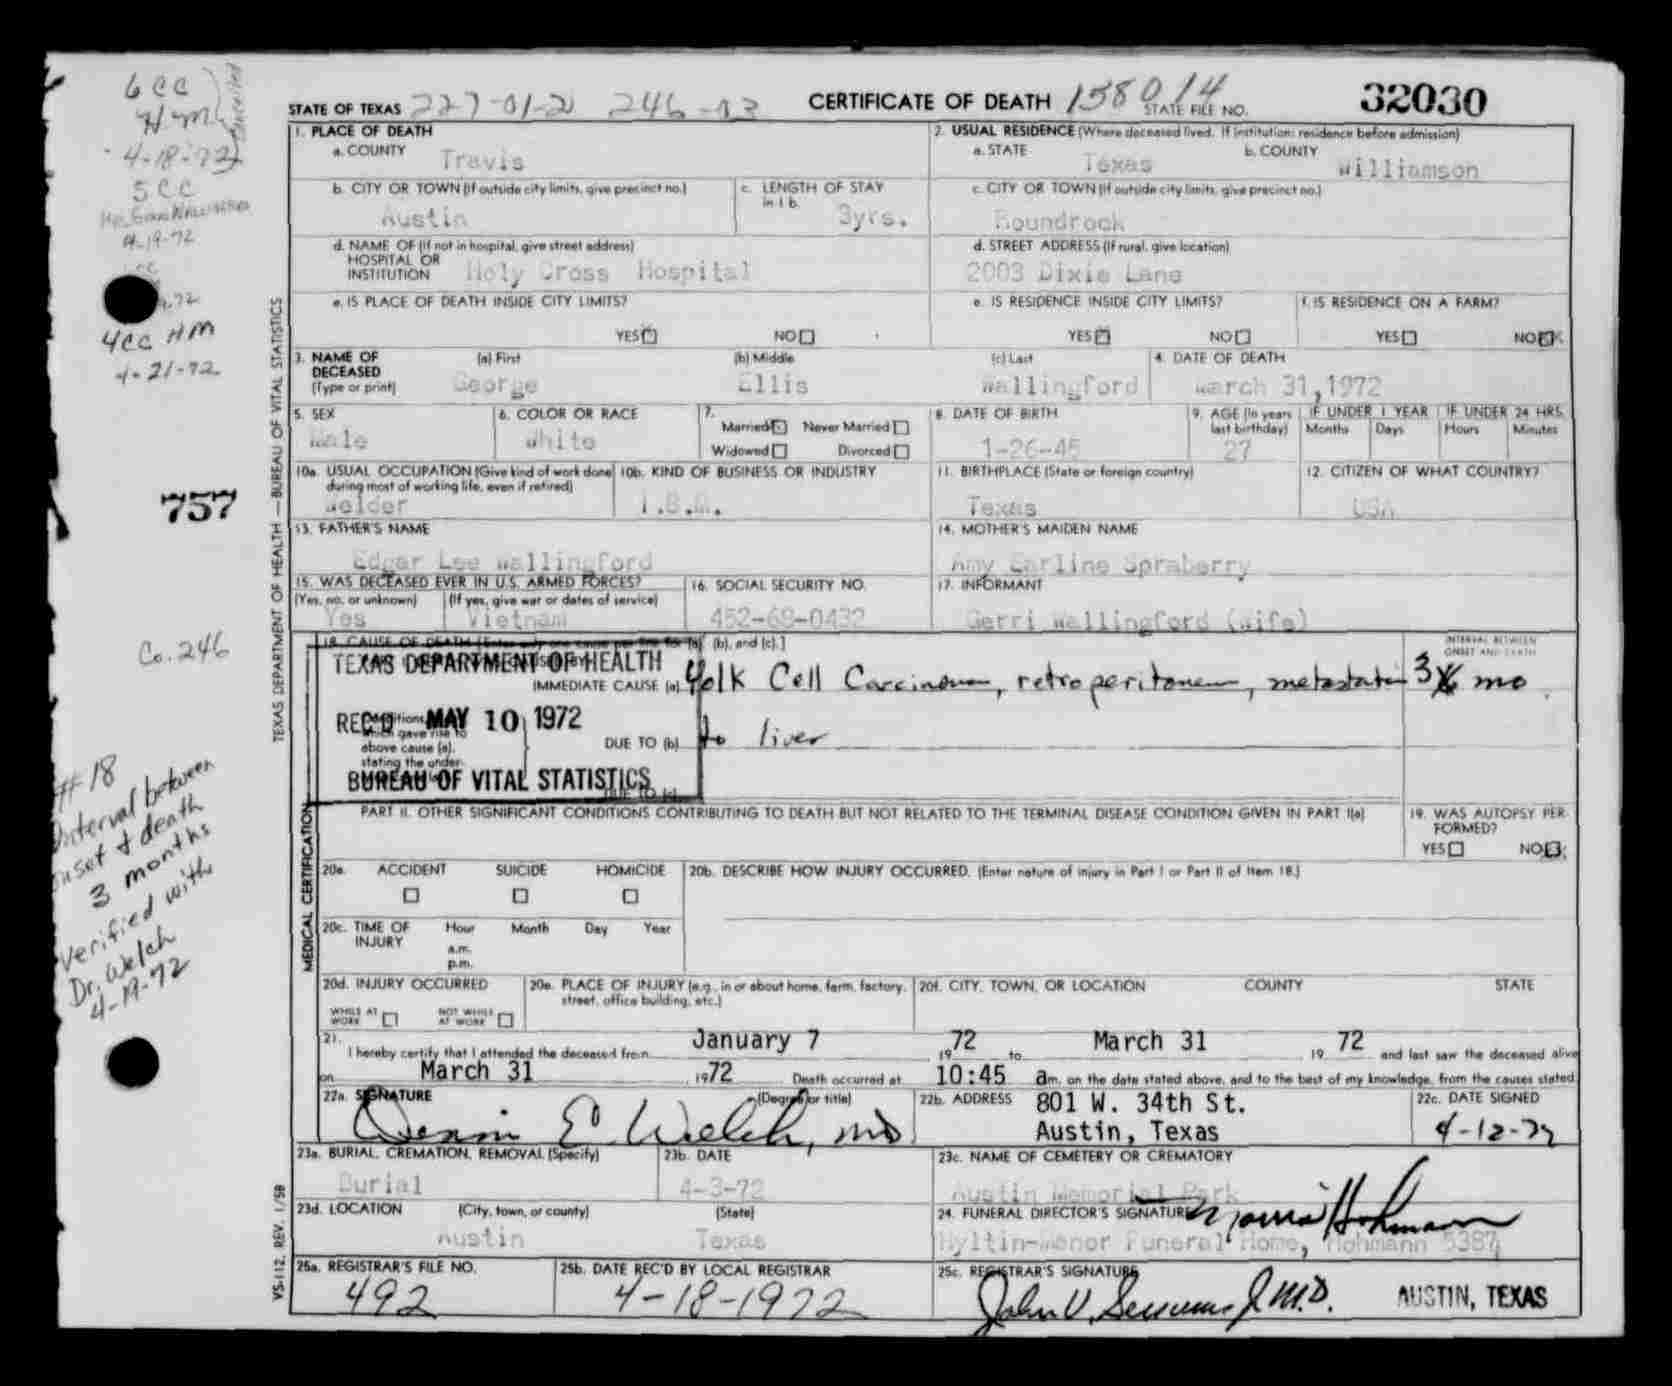 6 CC
HM
4-18-72
5 CC
4-19-72
4 CC HM
4-21-72
757
Co. 246
#18
Interval between
onset & death
3 months
verified with
Dr. Welch
4-19-72
TEXAS DEPARTMENT OF HEALTH — BUREAU OF VITAL STATISTICS
VS-112, REV. 1/58
MEDICAL CERTIFICATION
STATE OF TEXAS 227-01-2 246-03 CERTIFICATE OF DEATH 138014 STATE FILE NO. 32030
1. PLACE OF DEATH
a. COUNTY Travis
2. USUAL RESIDENCE (Where deceased lived. If institution: residence before admission)
a. STATE Texas b. COUNTY Williamson
b. CITY OR TOWN (If outside city limits, give precinct no.) Austin
c. LENGTH OF STAY in 1 b. 3yrs.
c. CITY OR TOWN (If outside city limits, give precinct no.) Roundrock
d. NAME OF (If not in hospital, give street address) HOSPITAL OR INSTITUTION Holy Cross Hospital
d. STREET ADDRESS (If rural, give location) 2003 Dixie Lane
e. IS PLACE OF DEATH INSIDE CITY LIMITS? YES NO
e. IS RESIDENCE INSIDE CITY LIMITS? YES NO
f. IS RESIDENCE ON A FARM? YES NO
3. NAME OF DECEASED (Type or print) (a) First George (b) Middle Ellis (c) Last Wallingford
4. DATE OF DEATH March 31,1972
5. SEX Male
6. COLOR OR RACE White
7. Married Never Married Widowed Divorced
8. DATE OF BIRTH 1-26-45
9. AGE (In years last birthday) 27
IF UNDER 1 YEAR Months Days
IF UNDER 24 HRS. Hours Minutes
10a. USUAL OCCUPATION (Give kind of work done during most of working life, even if retired) Welder
10b. KIND OF BUSINESS OR INDUSTRY I.B.M.
11. BIRTHPLACE (State or foreign country) Texas
12. CITIZEN OF WHAT COUNTRY? USA
13. FATHER'S NAME Edgar Lee Wallingford
14. MOTHER'S MAIDEN NAME Amy Earline Spraberry
15. WAS DECEASED EVER IN U.S. ARMED FORCES?
(Yes, no, or unknown) Yes (If yes, give war or dates of service) Vietnam
16. SOCIAL SECURITY NO. 452-68-0432
17. INFORMANT Gerri Wallingford (wife)
18. CAUSE OF DEATH (b), and (c).]
INTERVAL BETWEEN ONSET AND DEATH
TEXAS DEPARTMENT OF HEALTH
REC'D MAY 10 1972
BUREAU OF VITAL STATISTICS
IMMEDIATE CAUSE (a) Yolk Cell Carcinoma, retroperitoneum, metastatic 3 mo
above cause (a), stating the under-
DUE TO (b) to liver
DUE TO (c)
PART II. OTHER SIGNIFICANT CONDITIONS CONTRIBUTING TO DEATH BUT NOT RELATED TO THE TERMINAL DISEASE CONDITION GIVEN IN PART I(a)
19. WAS AUTOPSY PERFORMED? YES NO
20a. ACCIDENT SUICIDE HOMICIDE
20b. DESCRIBE HOW INJURY OCCURRED. (Enter nature of injury in Part I or Part II of Item 18.)
20c. TIME OF INJURY Hour Month Day Year
a.m.
p.m.
20d. INJURY OCCURRED
WHILE AT WORK NOT WHILE AT WORK
20e. PLACE OF INJURY (e.g., in or about home, farm, factory, street, office building, etc.)
20f. CITY, TOWN, OR LOCATION COUNTY STATE
21. I hereby certify that I attended the deceased from January 7 1972 to March 31 1972 and last saw the deceased alive
on March 31 1972 Death occurred at 10:45 am. on the date stated above, and to the best of my knowledge, from the causes stated.
22a. SIGNATURE (Degree or title) Dennis E Welch, MD
22b. ADDRESS 801 W. 34th St.
Austin, Texas
22c. DATE SIGNED 4-12-72
23a. BURIAL, CREMATION, REMOVAL (Specify) Burial
23b. DATE 4-3-72
23c. NAME OF CEMETERY OR CREMATORY Austin Memorial Park
23d. LOCATION (City, town, or county) Austin (State) Texas
24. FUNERAL DIRECTOR'S SIGNATURE Morris Hohmann
Hyltin-Manor Funeral Home, Hohmann 5387
25a. REGISTRAR'S FILE NO. 492
25b. DATE REC'D BY LOCAL REGISTRAR 4-18-1972
25c. REGISTRAR'S SIGNATURE M.D. AUSTIN, TEXAS